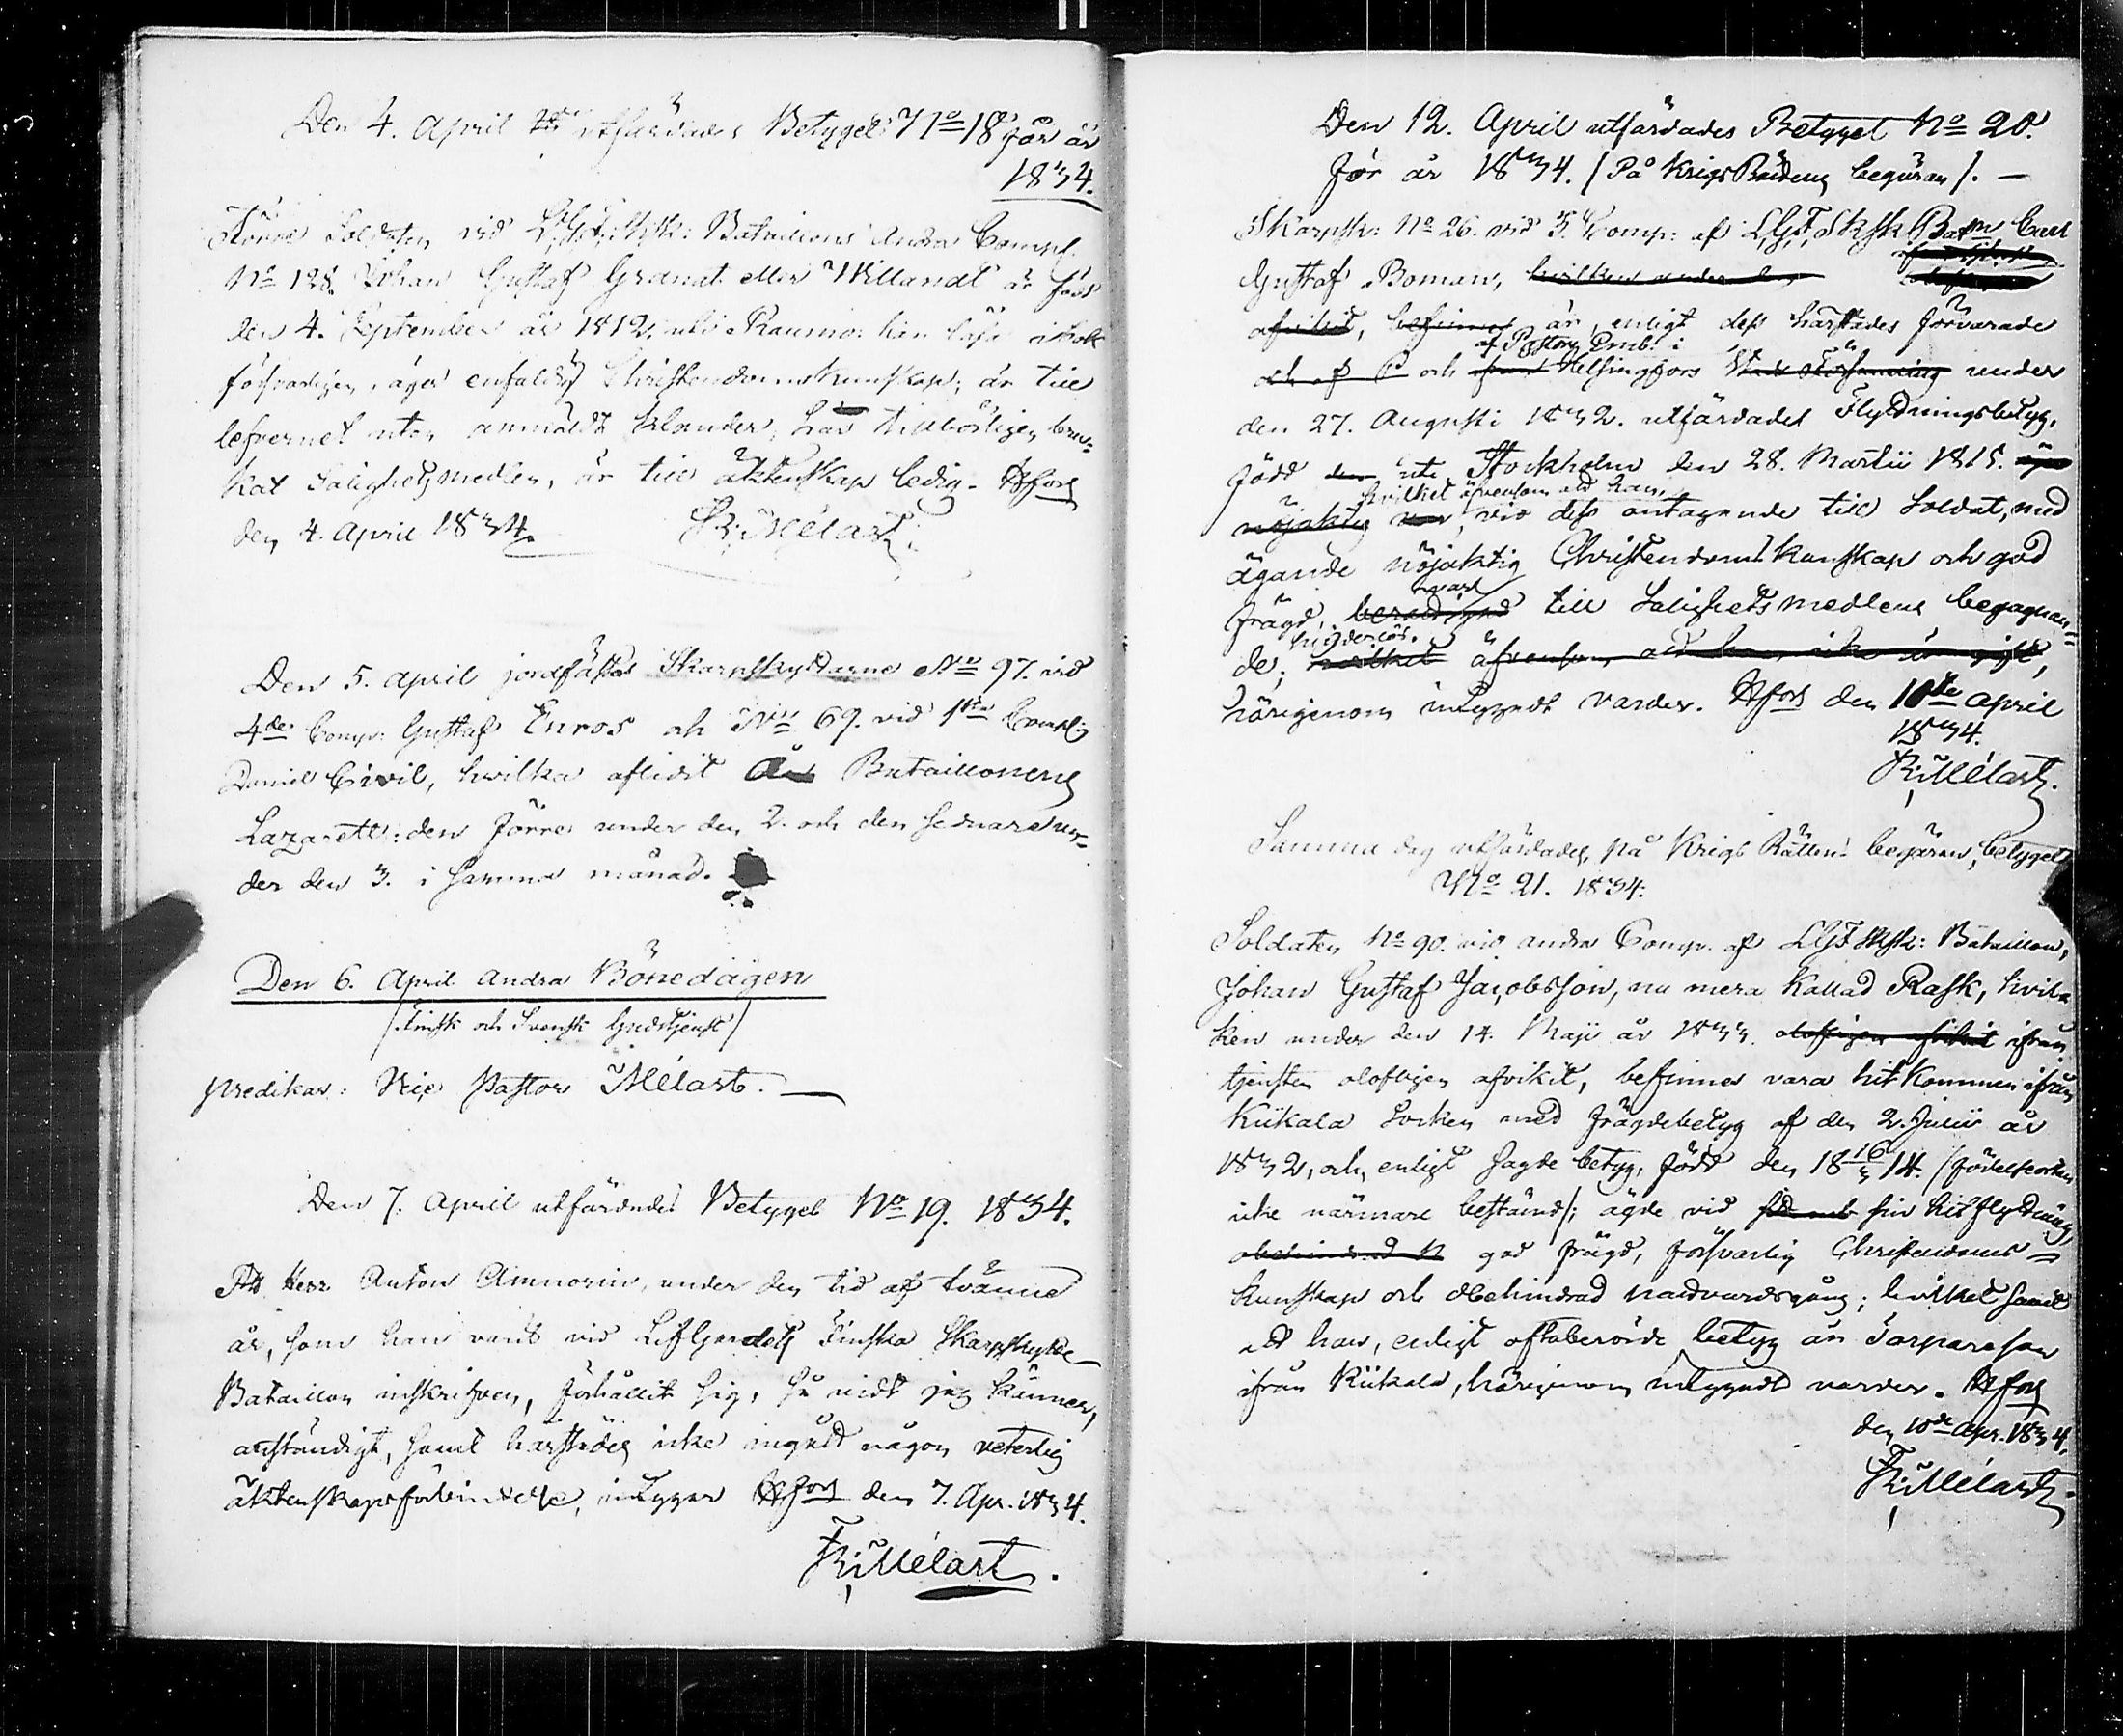 Den 4. April utfärdades Betyget No 18 för år
1834.
Förre Soldaten vid L.G.F. Sksk: Bataillons Andra Comp.
No 128. Johan Gustaf Granat eller Willandt är född
den 4. September år 1812. uti Raumo: kan läsa i bok
försvarligen, äger enfaldig Christendomskunskap; är till
lefvernet utan anmäldt klander, har tillbörligen bru-
kat Salighetsmedlen, är till äktenskap ledig. Hfors
den 4. April 1834.
F.R. Mélart.
Den 5. April jordfästes Skarpskyttarne No 97. vid
4de Comp: Gustaf Enros och No 69. vid 1sta Comp:
Daniel Civil, hvilka aflidit Bataillonens
Lazarett: den förre under den 2. och den sednare un-
der den 3. i samma månad.
Den 6. April Andra Bönedagen
/Finsk och Svensk Gudstjenst/
predikar: Vice Pastor Mélart. —
Den 7. April utfärdades Betyget No 19. 1834.
Att Herr Anton Aminorin, under den tid af tvänne
år, som han varit vid Lifgardets Finska Skarpskytte-
Bataillon inskrifven, förhållit sig, så vidt jag känner,
anständigt, samt härstädes icke ingått någon veterlig
äktenskapsförbindelse, intygar Hfors den 7. Apr. 1834.
F.R. Mélart.
Den 12. April utfärdades Betyget No 20.
för år 1834. /På KrigsRättens begäran/. —
Skarpsk: No 26. vid 3. Comp: af L.G.F. Sksk. Batn Carl
Gustaf Boman, hvilken under den
afvikit, befinnes är, enligt dess härstädes förvarade
af Pastors Emb: i
och af P och från Helsingfors Stads Församling under
den 27. Augusti 1832. utfärdadet Flyttningsbetyg,
född den uti Stockholm den 28. Martii 1815.
hvilket äfvensom att han,
nöjaktig vid dess antagande till Soldat, med
ägande nöjaktig Christendomskunskap och god
frägd, till Salighetsmedlens begagnan-
de; hvilket äfvensom att han icke är gift,
härigenom intygadt varder. Hfors den 10de April
1834.
F.R. Mélart.
Samma dag utfärdades, på KrigsRättens begäran, betyget
No 21. 1834.
Soldaten No 90. vid andra Comp. af LGF Sksk: Bataillon,
Johan Gustaf Jacobsson, nu mera kallad Rask, hvil-
ken under den 14. Maji år 1833. olofligen afvikit ifrån
tjensten olofligen afvikit, befinnes vara hitkommen ifrån
Kiikala Socken med frägdebetyg af den 2. Julii år
1832, och, enligt sagde betyg, född den 18 16/3 14. /födelseorten
icke närmare bestämd/; ägde vid sin hitflyttning
obehindrad n god frägd, försvarlig Christendoms-
kunskap och obehindrad nattvardsgång; hvilket samt
att han, enligt oftaberörde betyg är Torpareson
ifrån Kiikala, härigenom intygadt varder. Hfors
den 10de Apr. 1834.
F.R. Mélart.